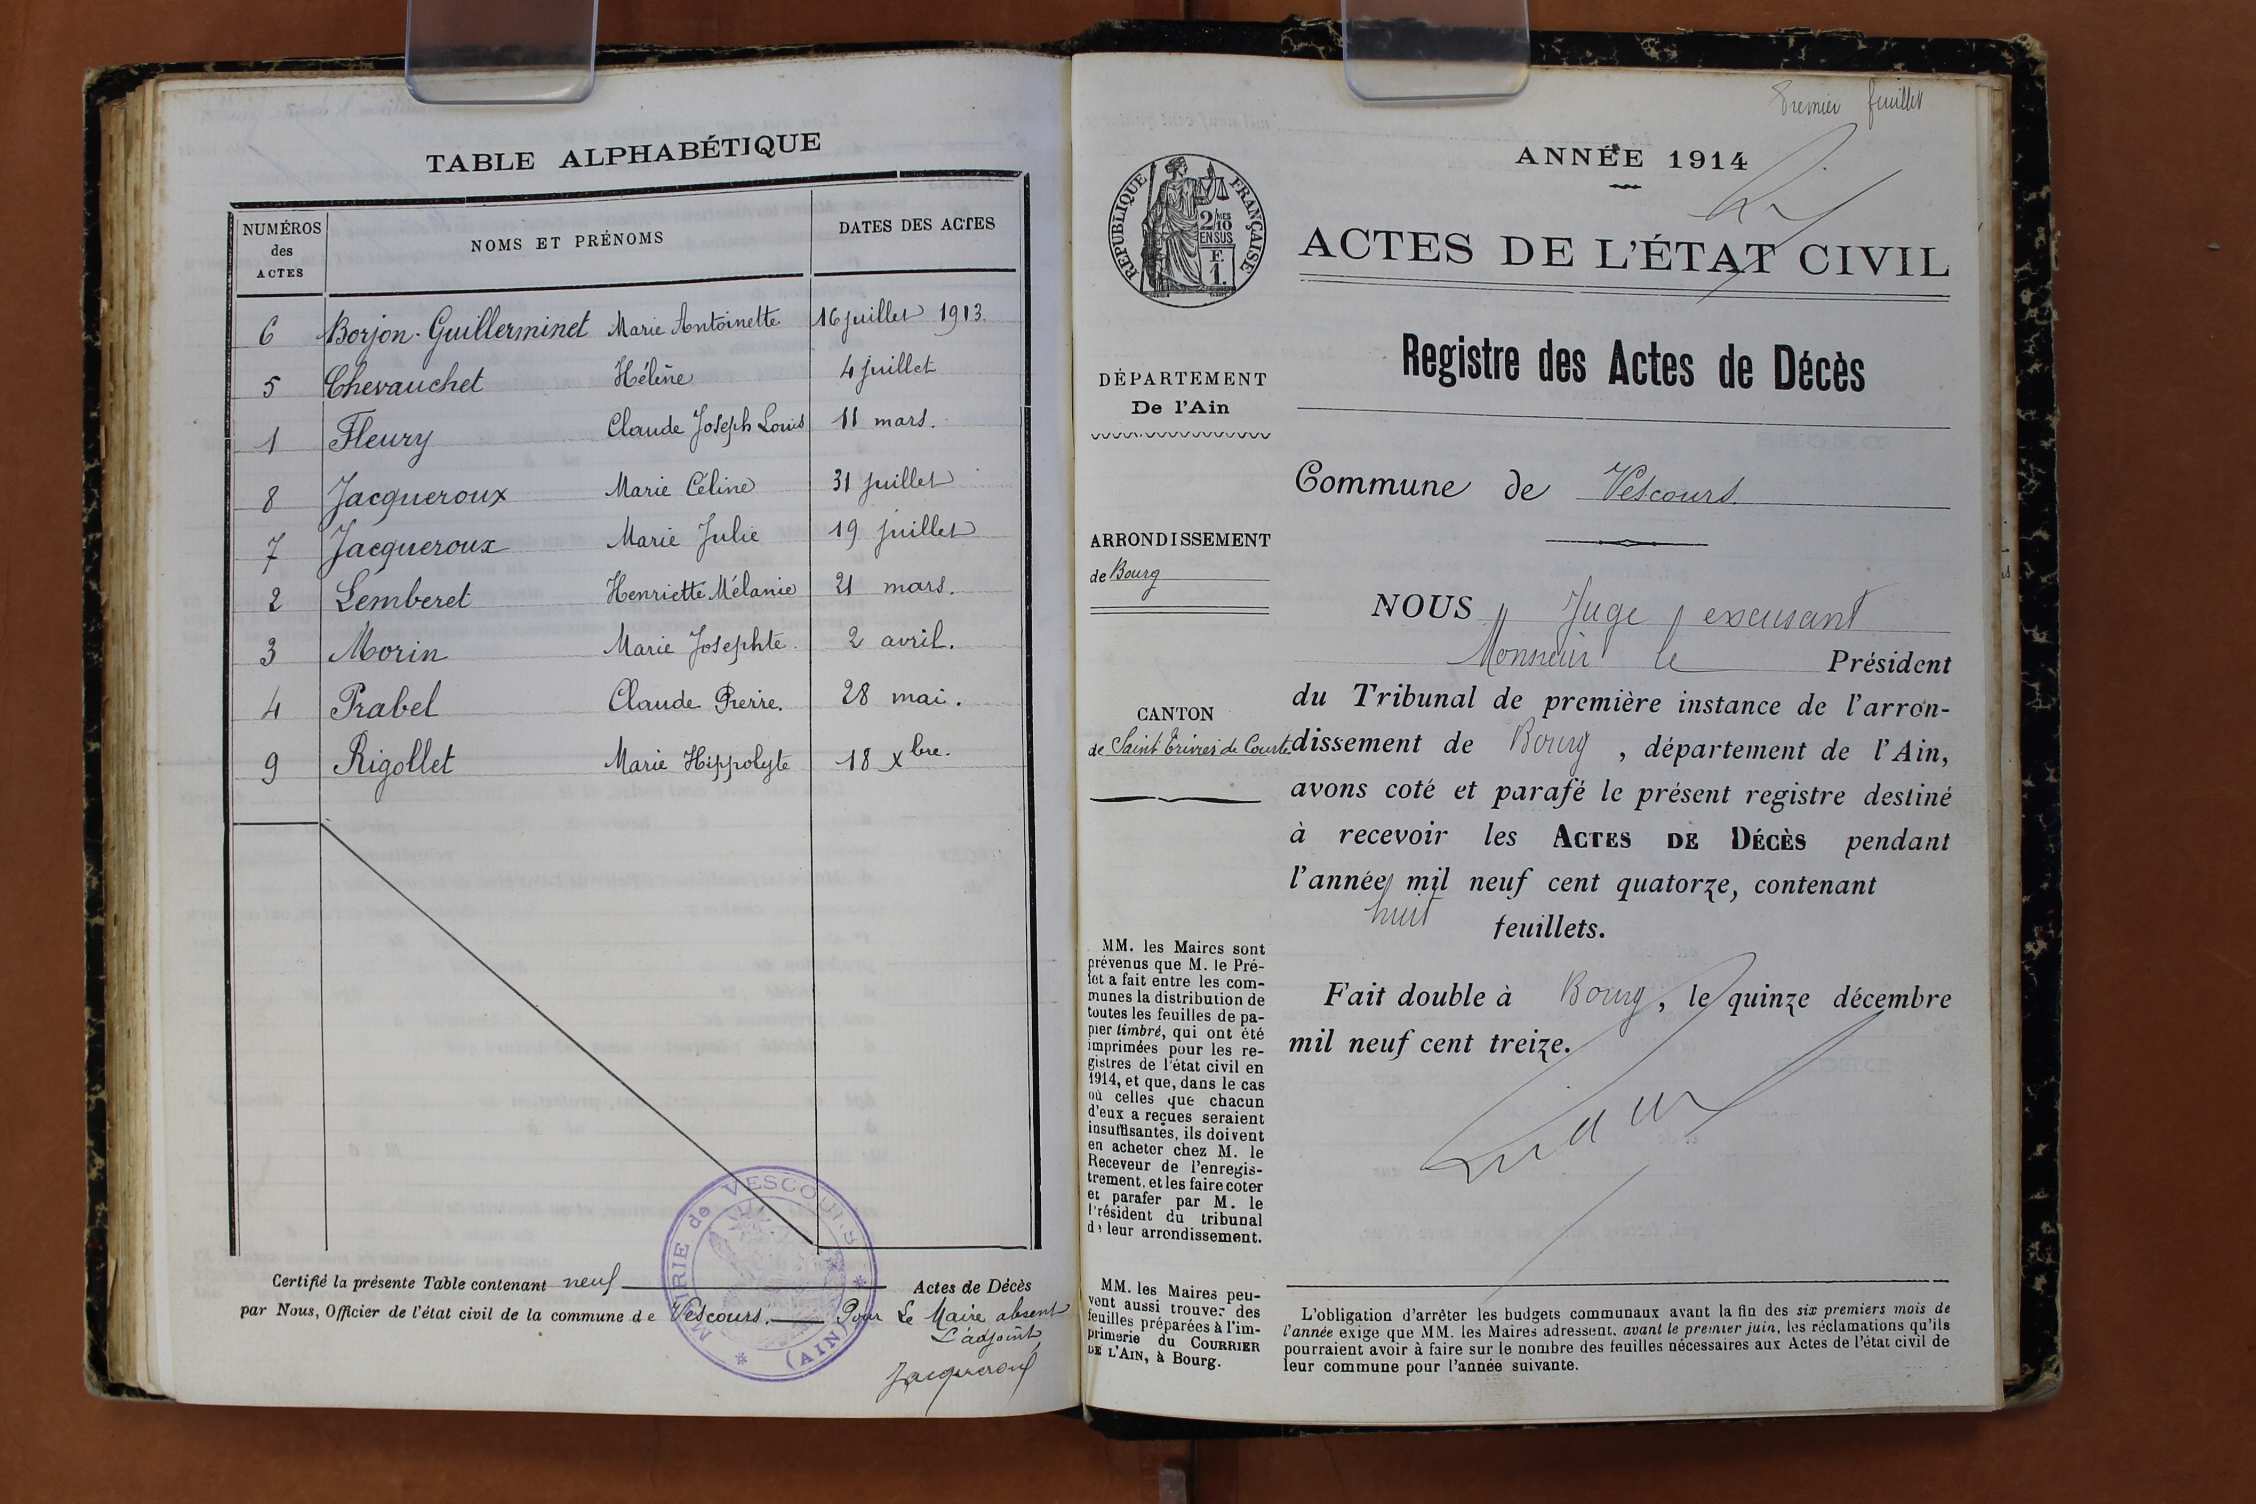 TABLE ALPHABÉTIQUE
NUMÉROS des ACTES
NOMS ET PRÉNOMS
DATES DES ACTES
6 Borjon-Guillerminet Marie Antoinette 16 juillet 1913.
5 Chevauchet Hélène 4 juillet
1 Fleury Claude Joseph Louis 11 mars.
8 Jacqueroux Marie Céline 31 juillet
7 Jacqueroux Marie Julie 19 juillet
2 Lemberet Henriette Mélanie 21 mars.
3 Morin Marie Josephte. 2 avril.
4 Prabel Claude Pierre. 28 mai.
9 Rigollet Marie Hippolyte 18 xbre.
Certifié la présente Table contenant neuf Actes de Décès
par Nous, Officier de l'état civil de la commune de Vescours. Pour Le Maire absent
L'adjoint,
Jacqueroux
MAIRIE de VESCOURS * (AIN) *
Premier feuillet
ANNÉE 1914
RÉPUBLIQUE FRANÇAISE
2/10
MES
EN SUS
F.
1.
ACTES DE L'ÉTAT CIVIL
Registre des Actes de Décès
DÉPARTEMENT
De l'Ain
Commune de Vescours.
ARRONDISSEMENT
de Bourg
CANTON
de Saint Trivier de Courtes
NOUS Juge excusant
Monsieur le Président
du Tribunal de première instance de l'arron-
dissement de Bourg, département de l'Ain,
avons coté et parafé le présent registre destiné
à recevoir les ACTES DE DÉCÈS pendant
l'année mil neuf cent quatorze, contenant
huit feuillets.
Fait double à Bourg, le quinze décembre
mil neuf cent treize.
MM. les Maires sont
prévenus que M. le Pré-
fet a fait entre les com-
munes la distribution de
toutes les feuilles de pa-
pier timbré, qui ont été
imprimées pour les re-
gistres de l'état civil en
1914, et que, dans le cas
où celles que chacun
d'eux a reçues seraient
insuffisantes, ils doivent
en acheter chez M. le
Receveur de l'enregis-
trement, et les faire coter
et parafer par M. le
Président du tribunal
de leur arrondissement.
MM. les Maires peu-
vent aussi trouver des
feuilles préparées à l'im-
primerie du COURRIER
DE L'AIN, à Bourg.
L'obligation d'arrêter les budgets communaux avant la fin des six premiers mois de
l'année exige que MM. les Maires adressent, avant le premier juin, les réclamations qu'ils
pourraient avoir à faire sur le nombre des feuilles nécessaires aux Actes de l'état civil de
leur commune pour l'année suivante.